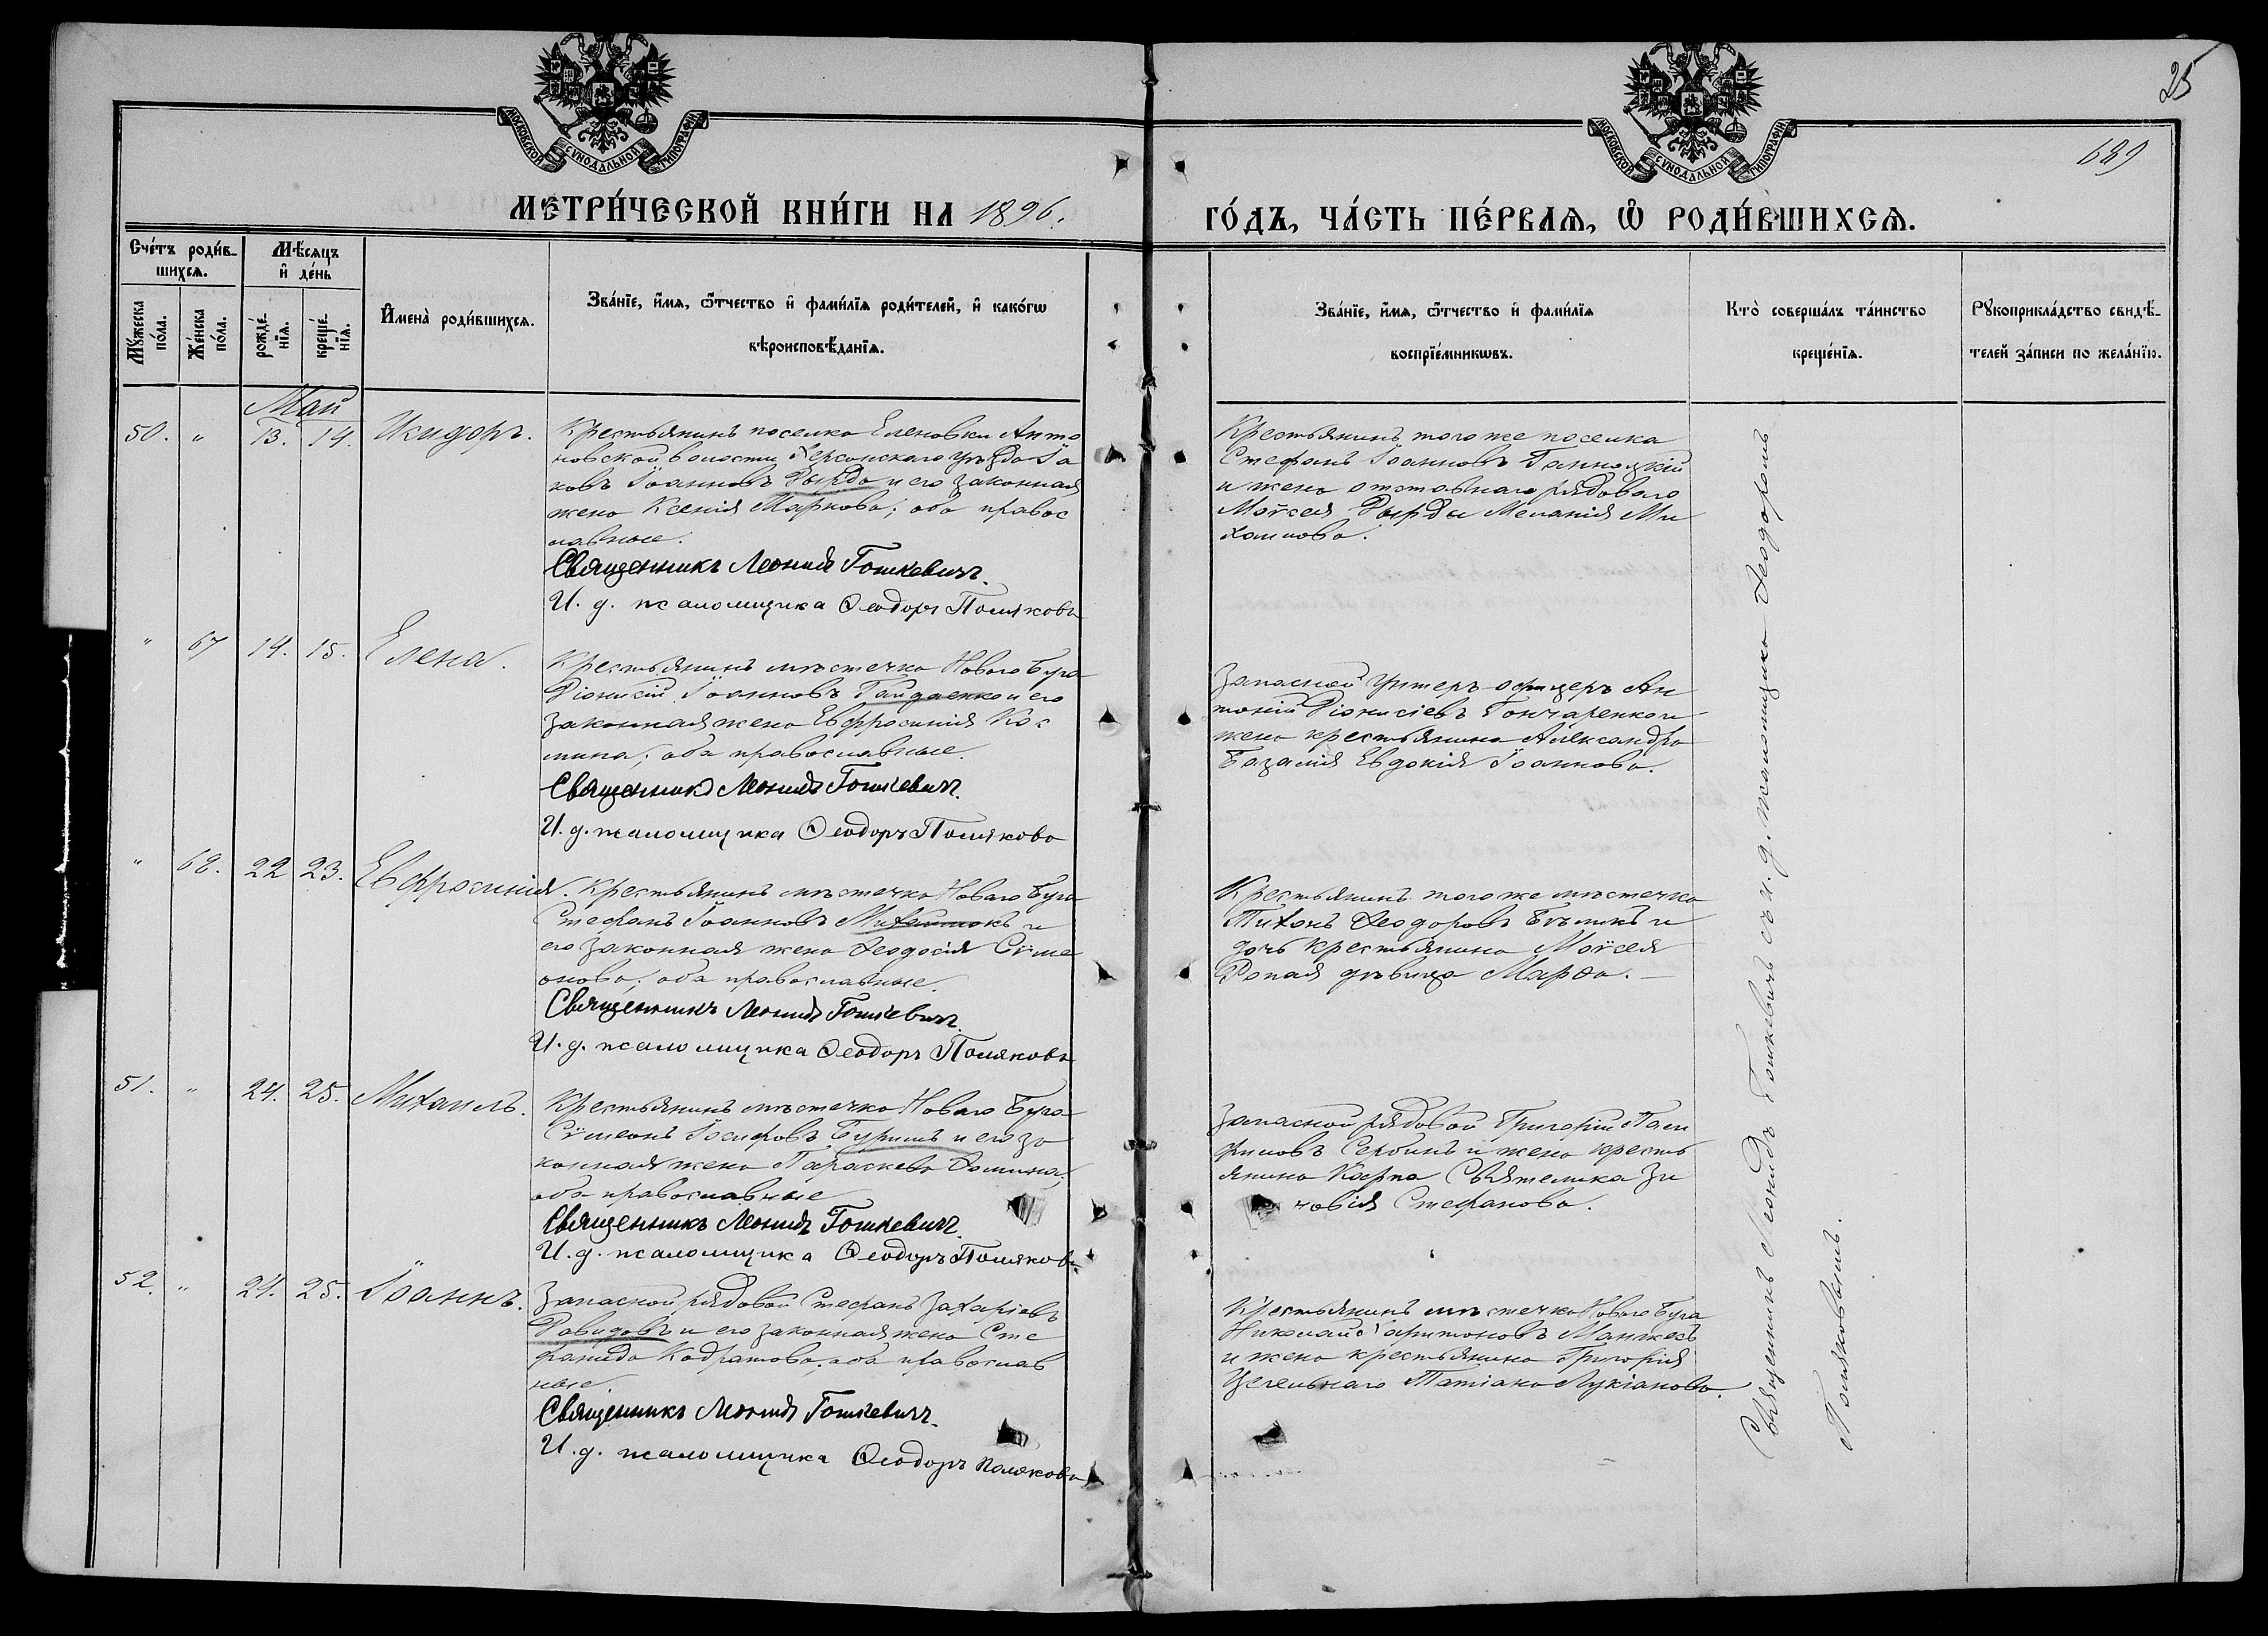 25
689
МОСКОВСКОЙ СѴНОДАЛЬНОЙ ТИПОГРАФІИ
МОСКОВСКОЙ СѴНОДАЛЬНОЙ ТИПОГРАФІИ
МЕТРИ́ЧЕСКОЙ КНИ́ГИ НА 1896. ГО́ДЪ, ЧА́СТЬ ПЕ́РВАѦ, Ѽ РОДИ́ВШИХСѦ.
Сче́тъ роди́вшихсѧ.
Мꙋ́жеска по́ла.
Же́нска по́ла.
Мѣ́сѧцъ и҆ де́нь
рожде́нїѧ.
креще́нїѧ.
И҆мена̀ роди́вшихсѧ.
Зва́нїе, и҆́мѧ, ѻ҆́тчество и҆ фами́лїѧ роди́телей, и҆ како́гѡ
вѣроисповѣ́данїѧ.
Зва́нїе, и҆́мѧ, ѻ҆́тчество и҆ фами́лїѧ
воспрїе́мникѡвъ.
Кто̀ соверша́лъ та́инство
креще́нїѧ.
Рꙋкоприкла́дство свидѣ́-
телей за́писи по жела́нїю.
Май
50. " 13. 14. Исидоръ.
Крестьянинъ поселка Еленовки Анто
новской волости Херсонскаго уѣзда Іа
ковъ Іоанновъ Дырда и его законная
жена Ксенія Маркова; оба правос
лавные.
Священникъ Леонидъ Гошкевичъ.
И. д. псаломщика Ѳеодоръ Поляковъ
Крестьянинъ того же поселка
Стефанъ Іоанновъ
и жена отставного рядоваго
Моѵсея Дырды Меланія Ми
хаилова.
" 67 14. 15. Елена.
Крестьянинъ мѣстечка Новаго Буга
Діонисій Іоанновъ Гайдаенко и его
законная жена Евфросинія Кос
мина; оба православные.
Священникъ Леонидъ Гошкевичъ.
И. д. псаломщика Ѳеодоръ Поляковъ
Запасной унтеръ-офицеръ Ан
тоній Діонисіевъ Гончаренко и
жена крестьянина Александра
Базалія Евдокія Іоаннова.
" 68. 22 23. Евфросинія.
Крестьянинъ мѣстечка Новаго Буга
Стефанъ Іоанновъ и
его законная жена Ѳеодосія Сѵме
онова; оба православные.
Священникъ Леонидъ Гошкевичъ.
И. д. псаломщика Ѳеодоръ Поляковъ
Крестьянинъ того же мѣстечка
Тихонъ Ѳеодоровъ Бѣликъ и
дочь крестьянина Моѵсея
дѣвица Марѳа. —
51. " 24. 25. Михаилъ.
Крестьянинъ мѣстечка Новаго Буга
Сѵмеонъ Іосифовъ и его за
конная жена Параскева Ѳомина;
оба православные
Священникъ Леонидъ Гошкевичъ.
И. д. псаломщика Ѳеодоръ Поляковъ
Запасной рядовой Григорій Пам
филовъ Сербинъ и жена кресть
янина Карпа Святелика Зи
новія Стефанова.
52. " 24. 25. Іоаннъ.
Запасной рядовой Стефанъ Захаріевъ
Давидовъ и его законная жена Сте
фанида Кодратова; оба православ
ные.
Священникъ Леонидъ Гошкевичъ.
И. д. псаломщика Ѳеодоръ Поляковъ
Крестьянинъ мѣстечка Новаго Буга
Николай Харитоновъ Манжосъ
и жена крестьянина Григорія
Цегельнаго Татіана Лукіанова.
Священникъ Леонидъ Гошкевичъ съ и. д. псаломщика Ѳеодоромъ
Поляковымъ.